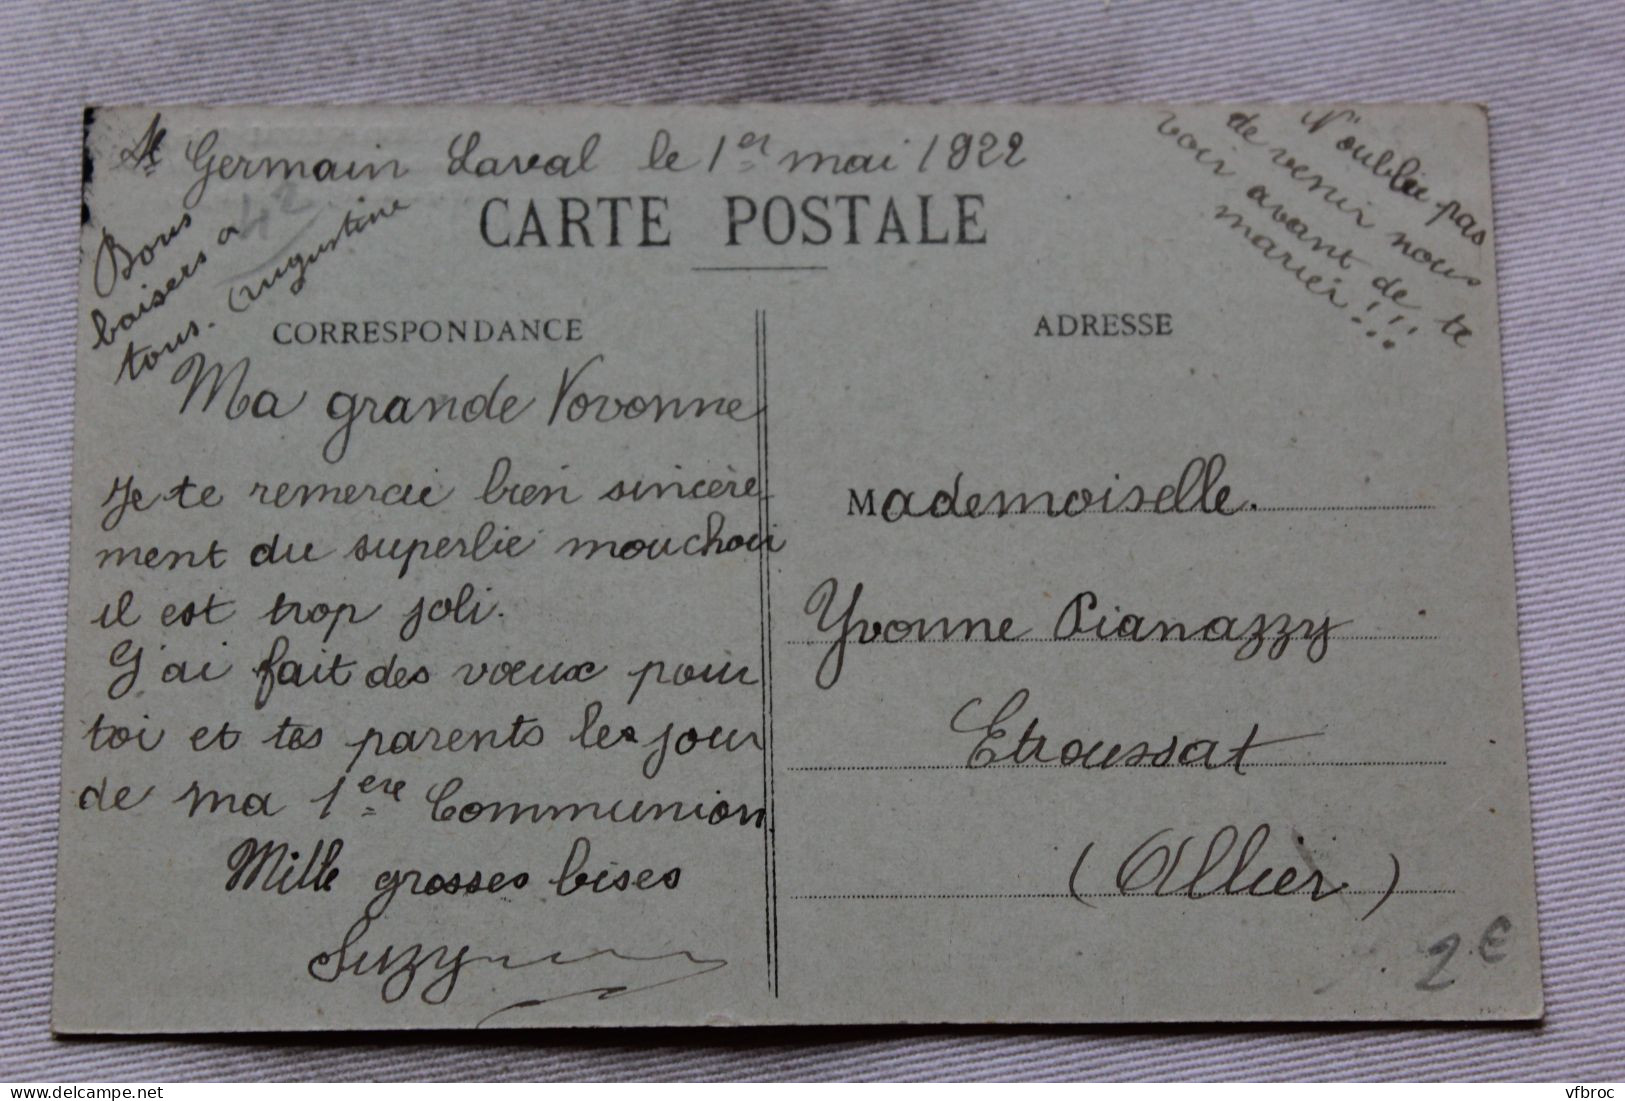 St Germain Laval le 1er mai 1922
42
Bons
baisers a
tous. Augustine
N'oublie pas
de venir nous
voir avant de te
marier!!!
CARTE POSTALE
CORRESPONDANCE
ADRESSE
Ma grande Vovonne
Je te remercie bien sincère-
ment du superbe mouchoir
il est trop joli.
J'ai fait des vœux pour
toi et tes parents le jour
de ma 1ère Communion
Mille grosses bises
Suzy
Mademoiselle.
Yvonne Pianazzy
Etroussat
(Allier)
2€
delcampe.net
vfbroc